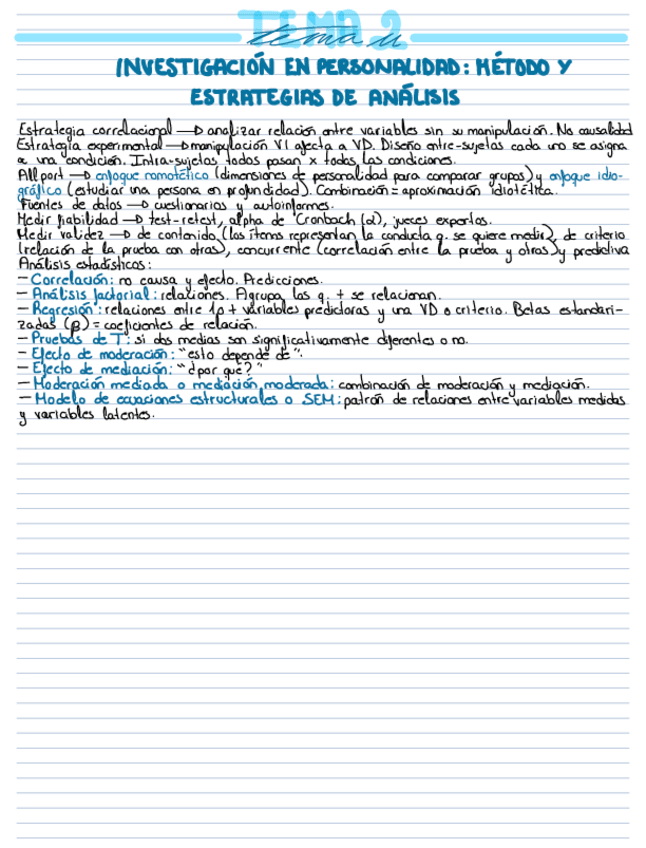 TEMA 2
tema
INVESTIGACIÓN EN PERSONALIDAD: MÉTODO Y
ESTRATEGIAS DE ANÁLISIS
Estrategia correlacional → analizar relación entre variables sin su manipulación. No causalidad
Estrategia experimental → manipulación VI afecta a VD. Diseño entre-sujetos cada uno se asigna
a una condición. Intra-sujetos todos pasan x todas las condiciones.
Allport → enfoque nomotético (dimensiones de personalidad para comparar grupos) y enfoque idio-
gráfico (estudiar una persona en profundidad). Combinación = aproximación idiotética.
Fuentes de datos → cuestionarios y autoinformes.
Medir fiabilidad → test-retest, alpha de Cronbach (α), jueces expertos.
Medir validez → de contenido (los ítems representan la conducta q. se quiere medir), de criterio
(relación de la prueba con otras), concurrente (correlación entre la prueba y otras) y predictiva
Análisis estadísticos:
- Correlación: no causa y efecto. Predicciones.
- Análisis factorial: relaciones. Agrupa las q. + se relacionan.
- Regresión: relaciones entre 1 o + variables predictoras y una VD o criterio. Betas estandari-
zadas (β) = coeficientes de relación.
- Pruebas de T: si dos medias son significativamente diferentes o no.
- Efecto de moderación: "esto depende de".
- Efecto de mediación: "¿por qué?"
- Moderación mediada o mediación moderada: combinación de moderación y mediación.
- Modelo de ecuaciones estructurales o SEM: patrón de relaciones entre variables medidas
y variables latentes.